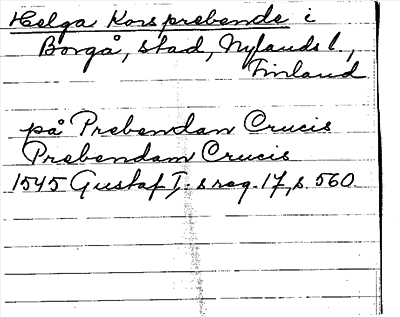 Helga Korsprebende i
Borgå, stad, Nylands l.,
Finland
på Prebendan Crucis
Prebendam Crucis
1545 Gustaf I: s reg. 17, s. 560.